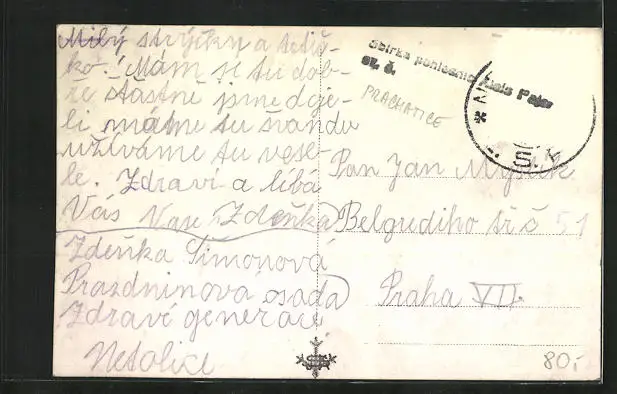 Milý strýčku a tetič-
ko! Mám se tu dob-
ře šťastně jsme doje-
li máme tu švandu
užíváme tu vese-
le. Zdraví a líbá
Vás Vaše Zdeňka
Zdeňka Šimonová
Prazdninova osada
Zdraví generace
Netolice
Sbírka pohlednic Alois Pejsa
ev. č.
PRACHATICE
Pan Jan
Belgrediho tř š 51
Praha VII.
80,-